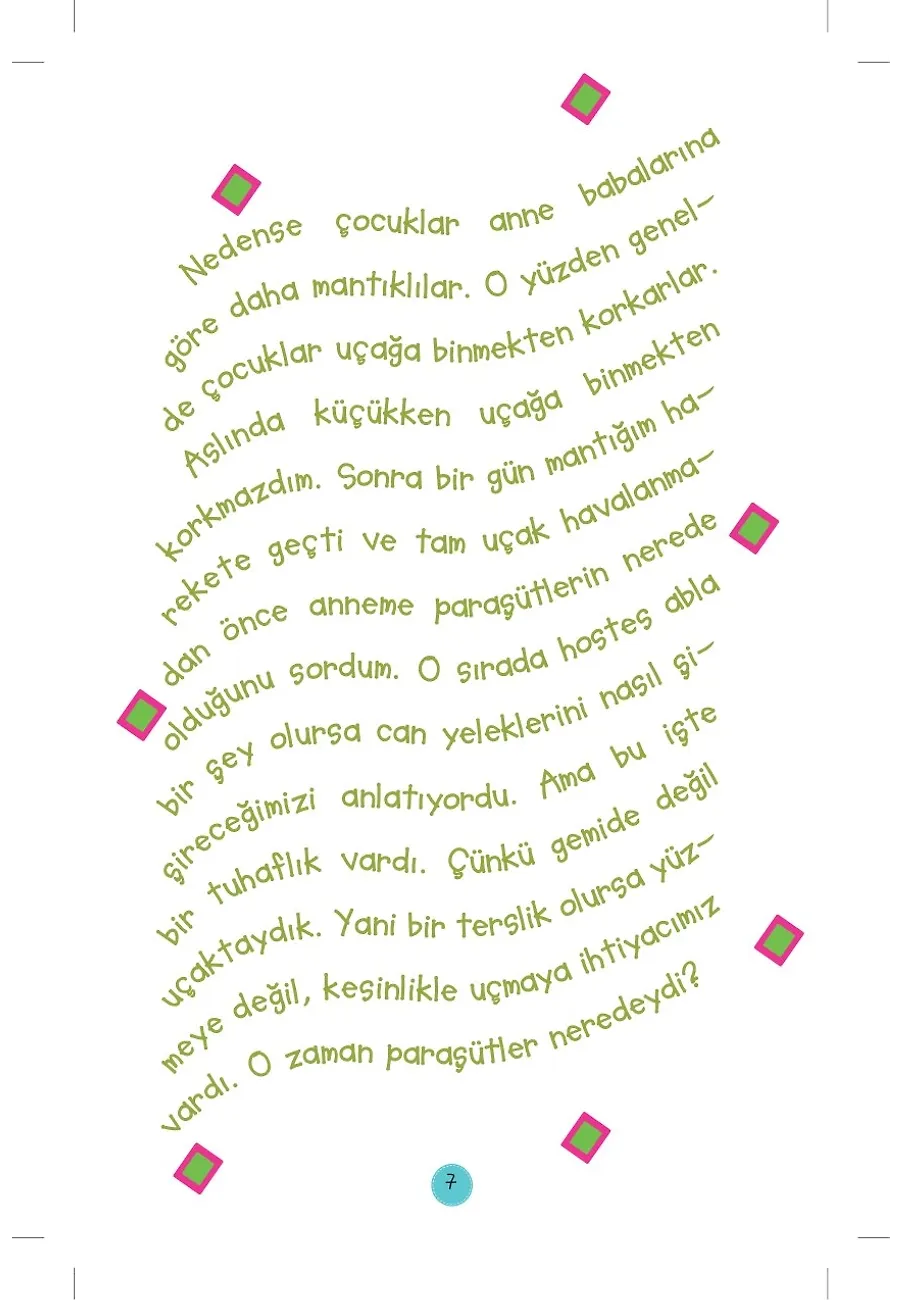 Nedense çocuklar anne babalarına
göre daha mantıklılar. O yüzden genel-
de çocuklar uçağa binmekten korkarlar.
Aslında küçükken uçağa binmekten
korkmazdım. Sonra bir gün mantığım ha-
rekete geçti ve tam uçak havalanma-
dan önce anneme paraşütlerin nerede
olduğunu sordum. O sırada hostes abla
bir şey olursa can yeleklerini nasıl şi-
şireceğimizi anlatıyordu. Ama bu işte
bir tuhaflık vardı. Çünkü gemide değil
uçaktaydık. Yani bir terslik olursa yüz-
meye değil, kesinlikle uçmaya ihtiyacımız
vardı. O zaman paraşütler neredeydi?
7